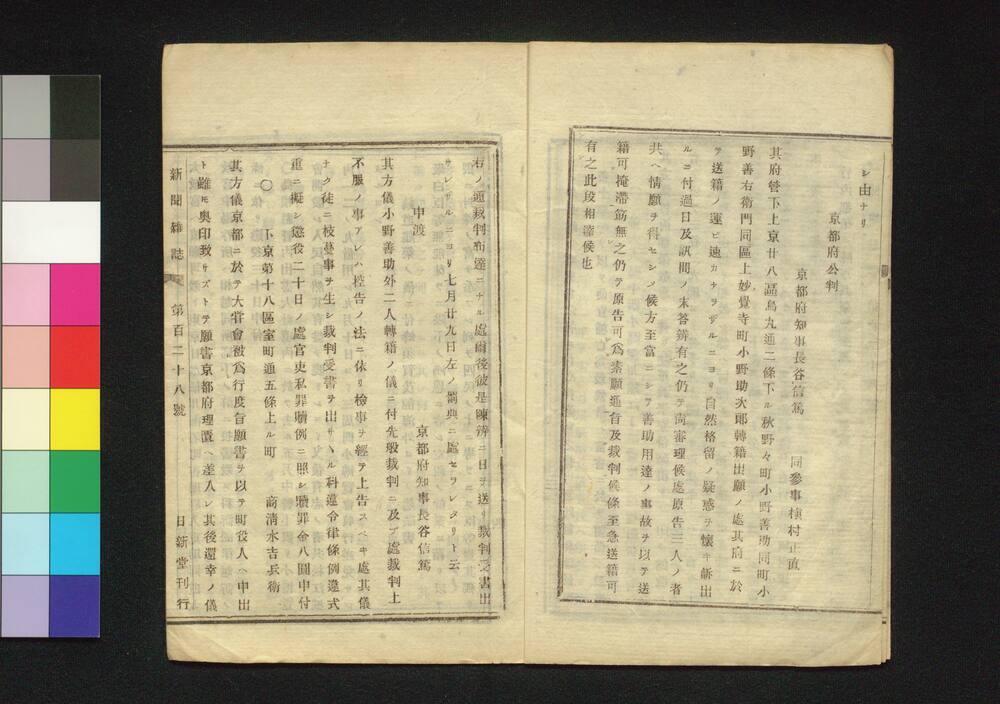 シ由ナリ
京都府公判
京都府知事長谷信篤
同參事槇村正直
其府管下上京廿八區烏丸通二條下ル秋野々町小野善助同町小
野善右衛門同區上妙覺寺町小野助次郎轉籍出願ノ處其府ニ於
テ送籍ノ運ビ速カナラザルニヨリ自然格留ノ疑惑ヲ懐キ訴出
ルニ付過日及訊問ノ末答辨有之仍テ尚審理候處原告三人ノ者
共ヘ情願ヲ得セシメ候方至當ニシテ善助用達ノ事故ヲ以テ送
籍可掩滯筋無之仍テ原告可為素願通旨及裁判候條至急送籍可
有之此段相達候也
右ノ通裁判布達ニナル處爾後彼是陳辨ニ日ヲ送リ裁判受書出
サレザルニヨリ七月廿九日左ノ罰典ニ處セラレタリト云
申渡
京都府知事長谷信篤
其方儀小野善助外二人轉籍ノ儀ニ付先般裁判ニ及ブ處裁判上
不服ノ事アレハ控告ノ法ニ依リ檢事ヲ經テ上告スヘキ處其儀
ナク徒ニ枝蔓事ヲ生シ裁判受書ヲ出サヽル科違令律條例違式
重ニ擬シ懲役二十日ノ處官吏私罪贖例ニ照シ贖罪金八圓申付
〇 下京第十八區室町通五條上ル町
商清水吉兵衛
其方儀京都ニ於テ大嘗會被為行度旨願書ヲ以テ町役人ヘ申出
ト雖モ奥印致サズトテ願書京都府理置ヘ差入レ其後還幸ノ儀
新聞雜誌
第百二十八號
日新堂刊行